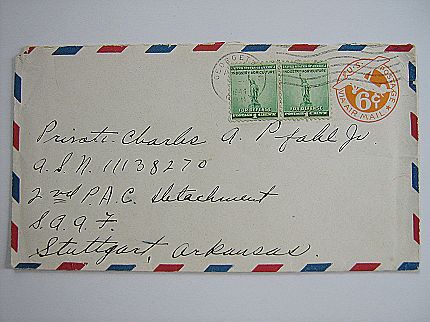 GEORGET
UNITED STATES OF AMERICA UNITED STATES OF AMERICA
INDUSTRY AGRICULTURE INDUSTRY AGRICULTURE
FOR DEFENSE FOR DEFENSE
POSTAGE 1 CENT POSTAGE 1 CENT
U.S. POSTAGE
6¢
VIA AIR MAIL
Private Charles A. Pfahl Jr.
A.S.N. 11138270
2nd P.A.C. Detachment
S.A.A.F.
Stuttgart, Arkansas.